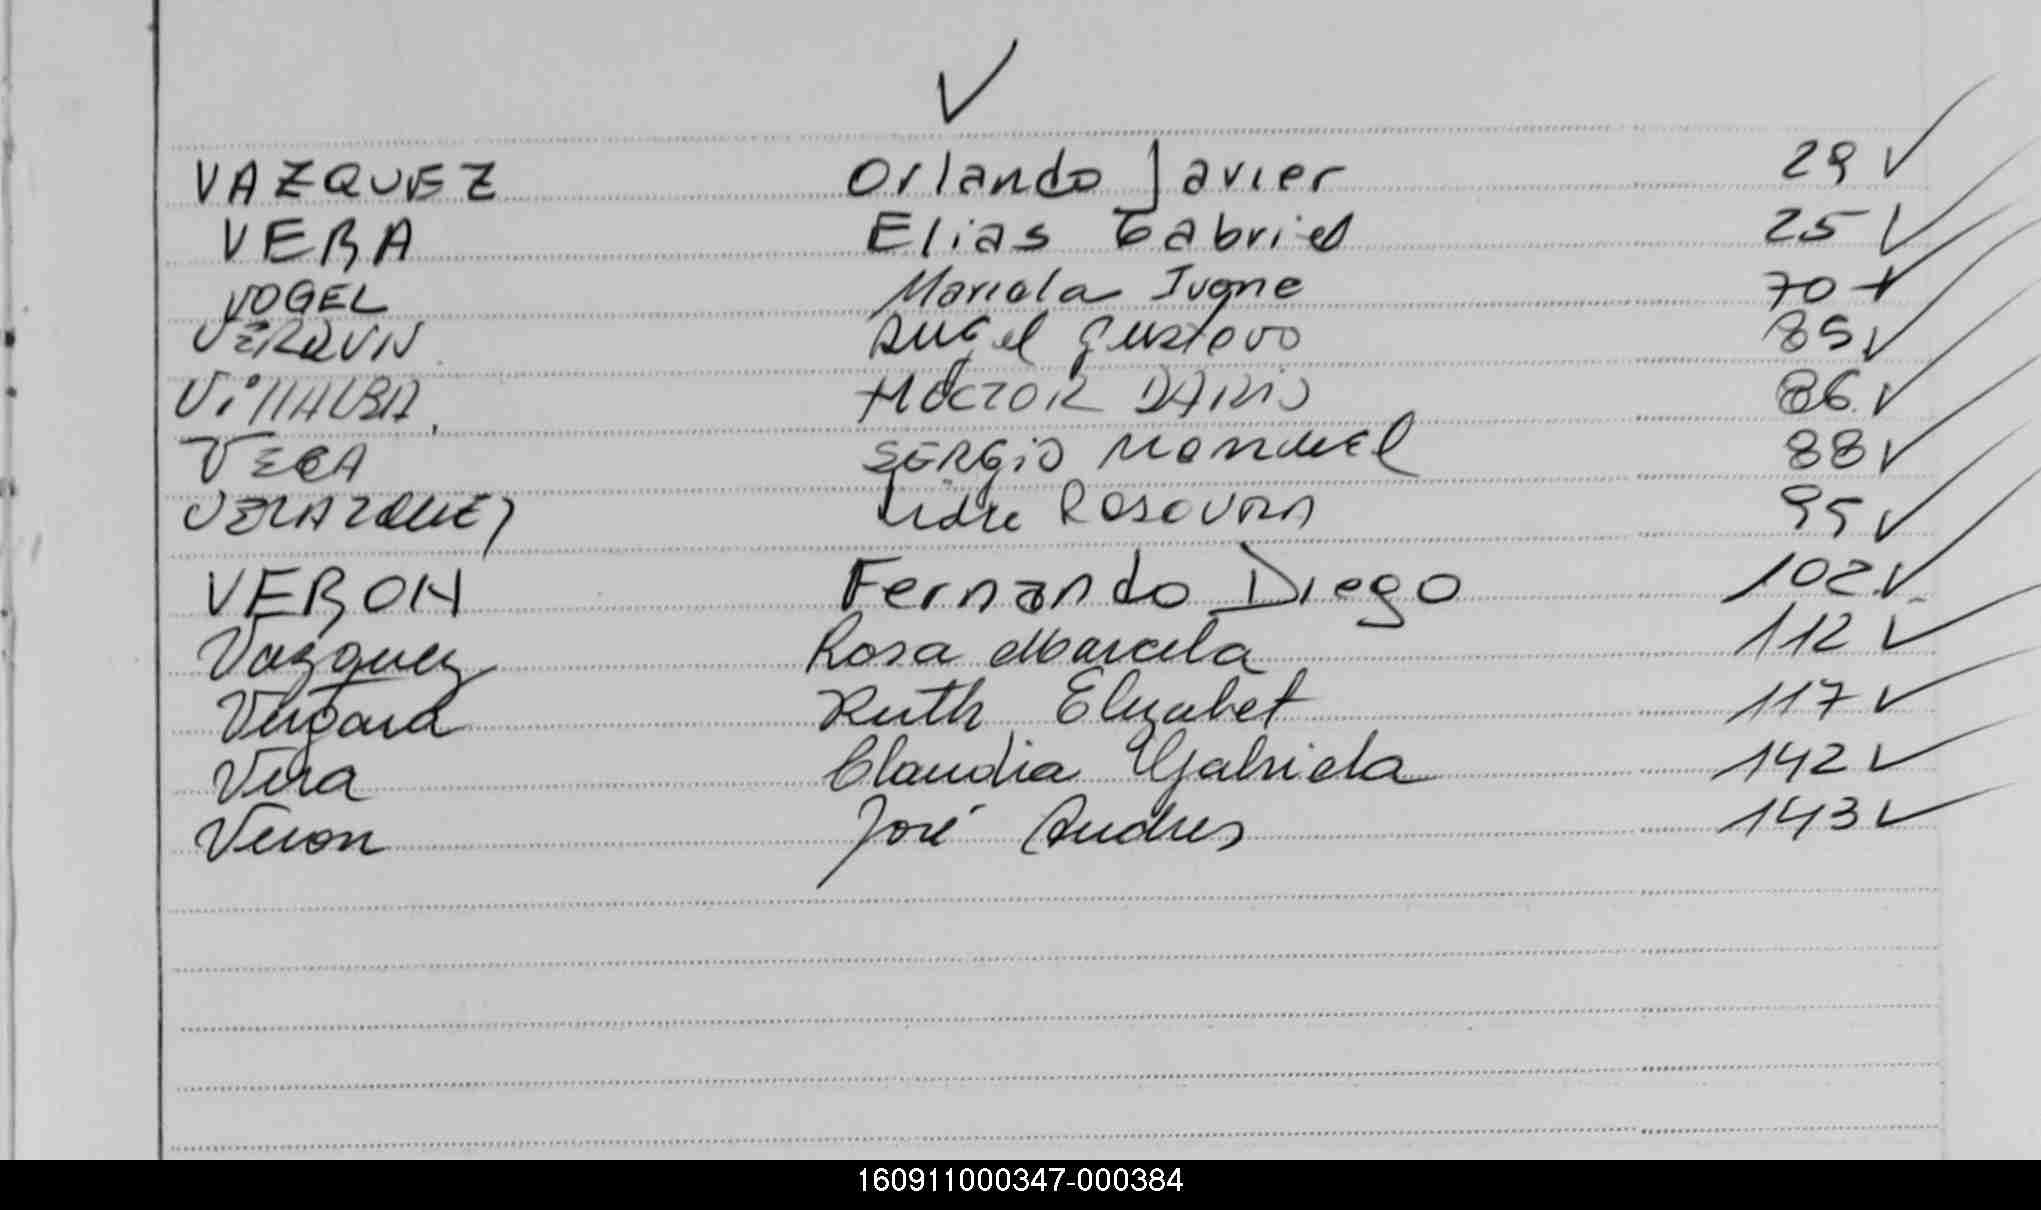 V
VAZQUEZ Orlando Javier 29 ✓
VERA Elias Gabriel 25 ✓
VOGEL Mariela Ivone 70 ✓
VERQUIN Angel Gustavo 85 ✓
VillALBA, HECTOR DARIO 86 ✓
VEGA SERGiO Manuel 88 ✓
VELAZQUEZ 95 ✓
VERON Fernando Diego 102 ✓
Vazquez Rosa Marcela 112 ✓
Vergara Ruth Elizabet 117 ✓
Vera Claudia Gabriela 142 ✓
Veron José Andres 143 ✓
160911000347-000384